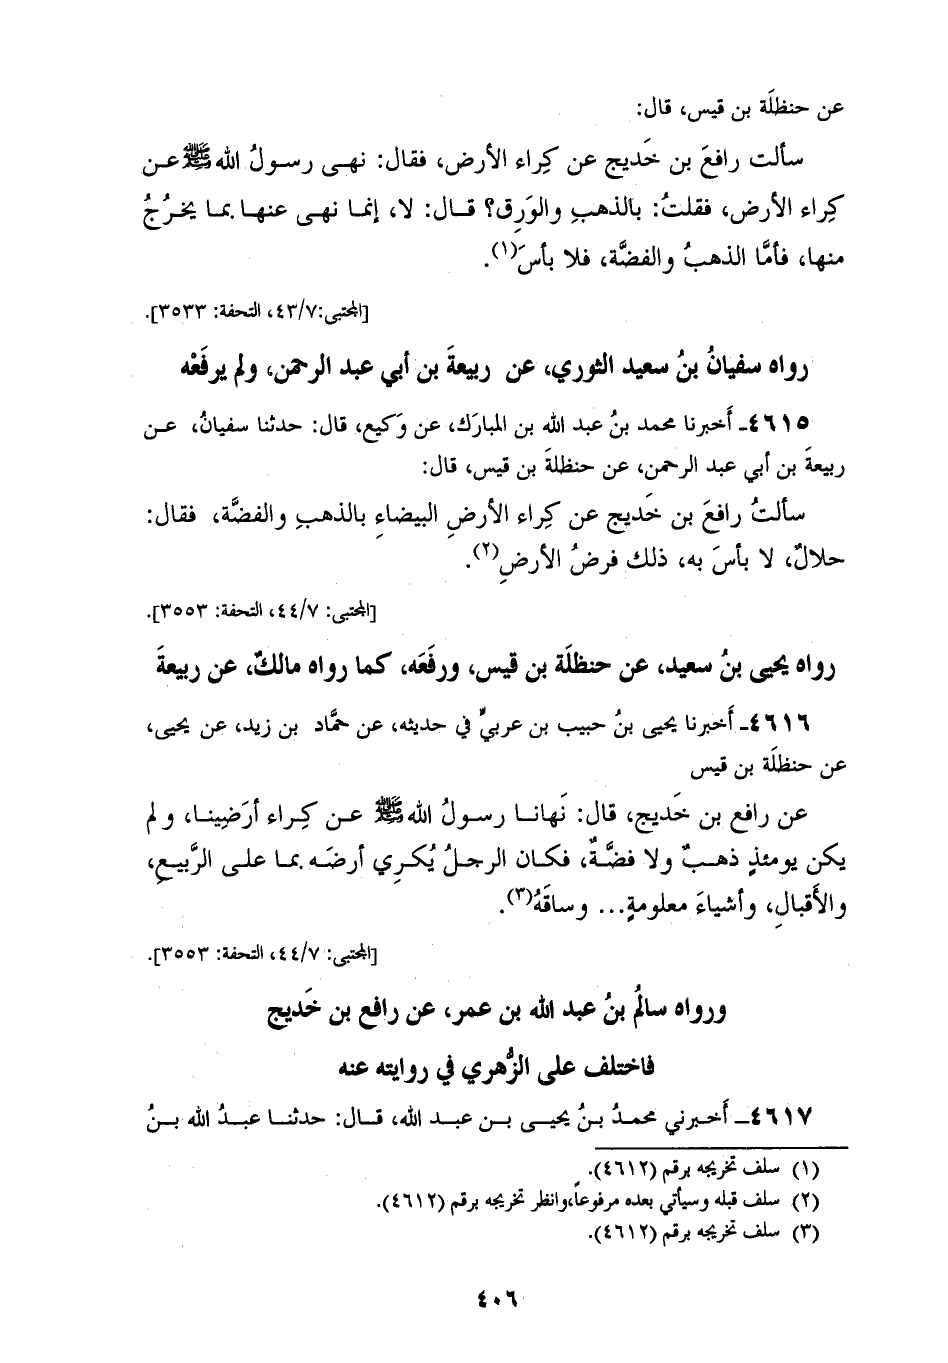 عن حنظلَة بن قيس، قال:
سألت رافعَ بن خَديج عن كِراء الأرض، فقال: نهى رسولُ الله ﷺ عن
كِراء الأرض، فقلتُ: بالذهبِ والوَرِق؟ قال: لا، إنما نهى عنها بما يخرُجُ
منها، فأمَّا الذهبُ والفضَّة، فلا بأسَ(١).
[المجتبى:٤٣/٧، التحفة: ٣٥٣٣].
رواه سفيانُ بنُ سعيد الثوري، عن ربيعةَ بن أبي عبد الرحمن، ولم يرفَعْه
٤٦١٥ـ أَخبرنا محمد بنُ عبد الله بن المبارَك، عن وَكيع، قال: حدثنا سفيانُ، عن
ربيعةَ بن أبي عبد الرحمن، عن حنظلةَ بن قيس، قال:
سألتُ رافعَ بن خَديج عن كِراء الأرضِ البيضاءِ بالذهبِ والفضَّة، فقال:
حلالٌ، لا بأسَ به، ذلك فرضُ الأرضِ(٢).
[المجتبى: ٤٤/٧، التحفة: ٣٥٥٣].
رواه يحيى بنُ سعيد، عن حنظلَة بن قيس، ورفَعَه، كما رواه مالكٌ، عن ربيعةَ
٤٦١٦ـ أَخبرنا يحيى بنُ حبيب بن عربيٍّ في حديثه، عن حمَّاد بن زيد، عن يحيى،
عن حنظلَة بن قيس
عن رافع بن خَديج، قال: نَهانا رسولُ الله ﷺ عن كِراء أرَضِينا، ولم
يكن يومئذٍ ذهبٌ ولا فضَّةٌ، فكان الرجلُ يُكرِي أرضَه بما على الرَّبيعِ،
والأَقبالِ، وأشياءَ معلومةٍ... وساقَهُ(٣).
[المجتبى: ٤٤/٧، التحفة: ٣٥٥٣].
ورواه سالمُ بنُ عبد الله بن عمر، عن رافع بن خَديج
فاختلف على الزُّهري في روايته عنه
٤٦١٧ـ أَخبرني محمدُ بنُ يحيى بن عبد الله، قال: حدثنا عبدُ الله بنُ
(١) سلف تخريجه برقم (٤٦١٢).
(٢) سلف قبله وسيأتي بعده مرفوعاً،وانظر تخريجه برقم (٤٦١٢).
(٣) سلف تخريجه برقم (٤٦١٢).
٤٠٦